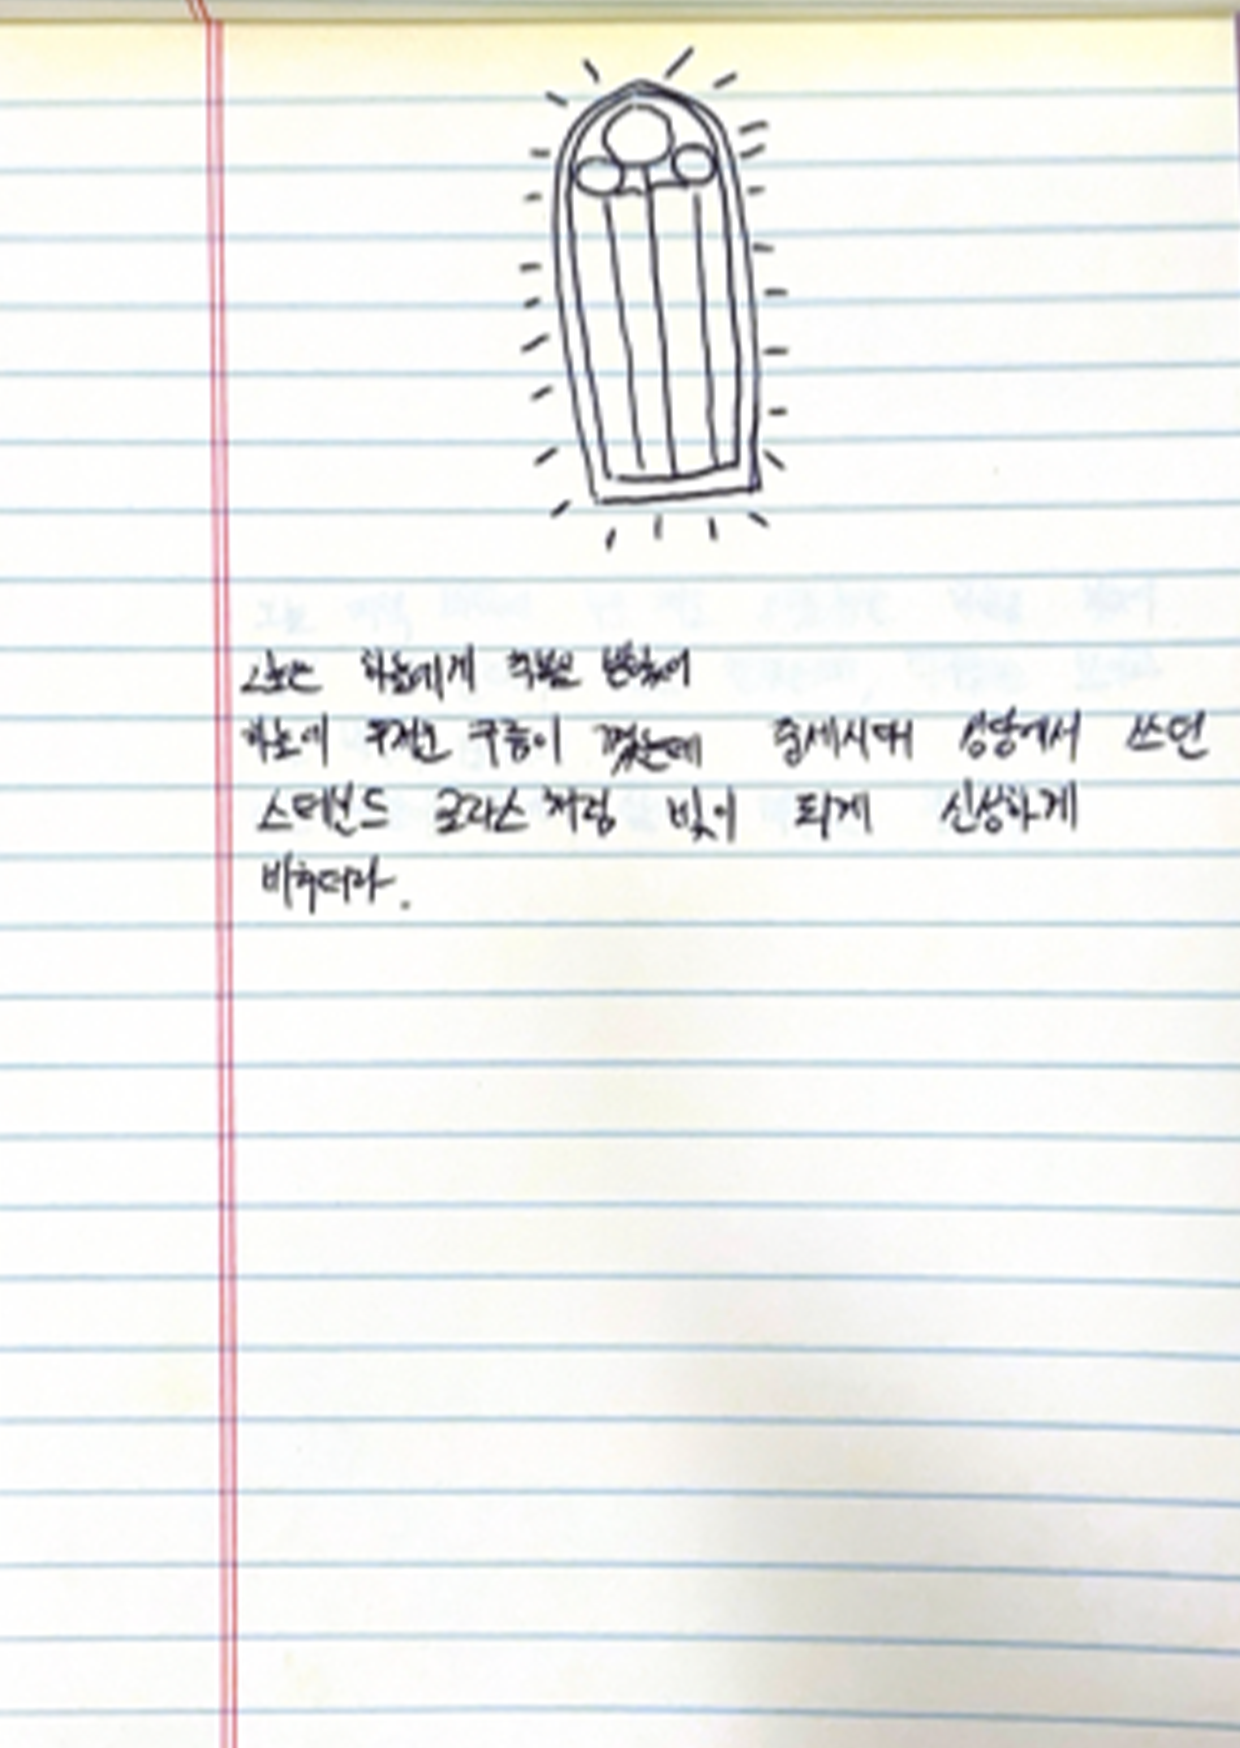 오늘은 하늘에게 축복을 받았어
하늘에 우젼은 구름이 꼈는데 중세시대 성당에서 쓰던
스테넌드 글라스처럼 빛이 되게 신성하게
비추더라.